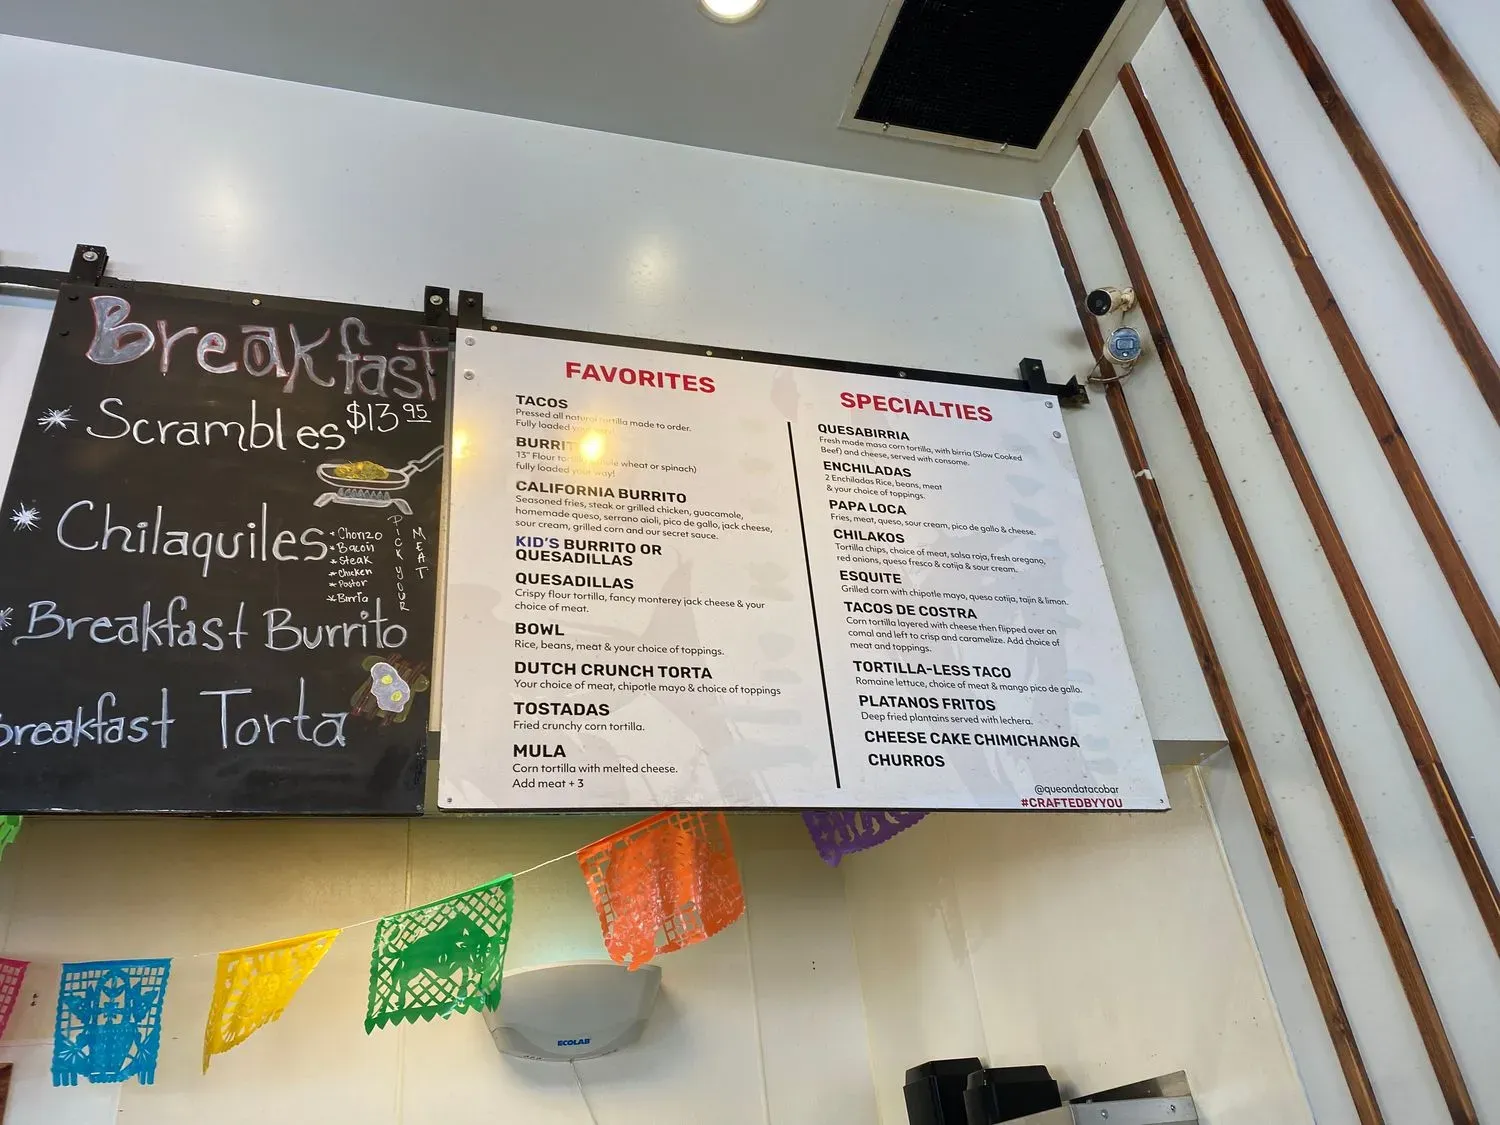 Breakfast
Scrambles $13.95
Chilaquiles
Chorizo
Bacon
Steak
Chicken
Pastor
Birria
PICK YOUR
MEAT
Breakfast Burrito
Breakfast Torta
FAVORITES
TACOS
Pressed all natural tortilla made to order.
Fully loaded
BURRIT
13" Flour wheat or spinach)
fully loaded your way!
CALIFORNIA BURRITO
Seasoned fries, steak or grilled chicken, guacamole,
homemade queso, serrano aioli, pico de gallo, jack cheese,
sour cream, grilled corn and our secret sauce.
KID'S BURRITO OR
QUESADILLAS
QUESADILLAS
Crispy flour tortilla, fancy monterey jack cheese & your
choice of meat.
BOWL
Rice, beans, meat & your choice of toppings.
DUTCH CRUNCH TORTA
Your choice of meat, chipotle mayo & choice of toppings
TOSTADAS
Fried crunchy corn tortilla.
MULA
Corn tortilla with melted cheese.
Add meat + 3
SPECIALTIES
QUESABIRRIA
Fresh made masa corn tortilla, with birria (Slow Cooked
Beef) and cheese, served with consome.
ENCHILADAS
2 Enchiladas Rice, beans, meat
& your choice of toppings.
PAPA LOCA
Fries, meat, queso, sour cream, pico de gallo & cheese.
CHILAKOS
Tortilla chips, choice of meat, salsa roja, fresh oregano,
red onions, queso fresco & cotija & sour cream.
ESQUITE
Grilled corn with chipotle mayo, queso cotija, tajin & limon.
TACOS DE COSTRA
Corn tortilla layered with cheese then flipped over on
comal and left to crisp and caramelize. Add choice of
meat and toppings.
TORTILLA-LESS TACO
Romaine lettuce, choice of meat & mango pico de gallo.
PLATANOS FRITOS
Deep fried plantains served with lechera.
CHEESE CAKE CHIMICHANGA
CHURROS
@queondatacobar
#CRAFTEDBYYOU
ECOLAB